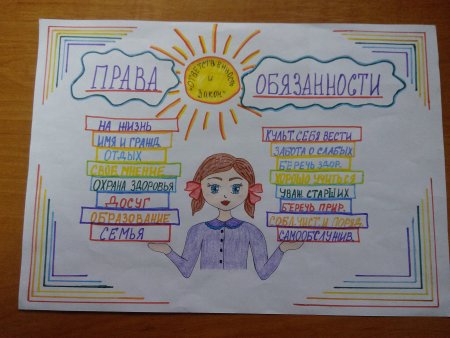 ПРАВА
"ОТВЕТСТВЕННОСТЬ
И
ЗАКОН"
ОБЯЗАННОСТИ
НА ЖИЗНЬ
ИМЯ И ГРАЖД.
ОТДЫХ
СВОЕ МНЕНИЕ
ОХРАНА ЗДОРОВЬЯ
ДОСУГ
ОБРАЗОВАНИЕ
СЕМЬЯ
КУЛЬТ. СЕБЯ ВЕСТИ
ЗАБОТА О СЛАБЫХ
БЕРЕЧЬ ЗДОР.
ХОРОШО УЧИТЬСЯ
УВАЖ. СТАРШИХ
БЕРЕЧЬ ПРИР.
СОБЛ. ЧИСТ. И ПОРЯД.
САМООБСЛУЖИВ.